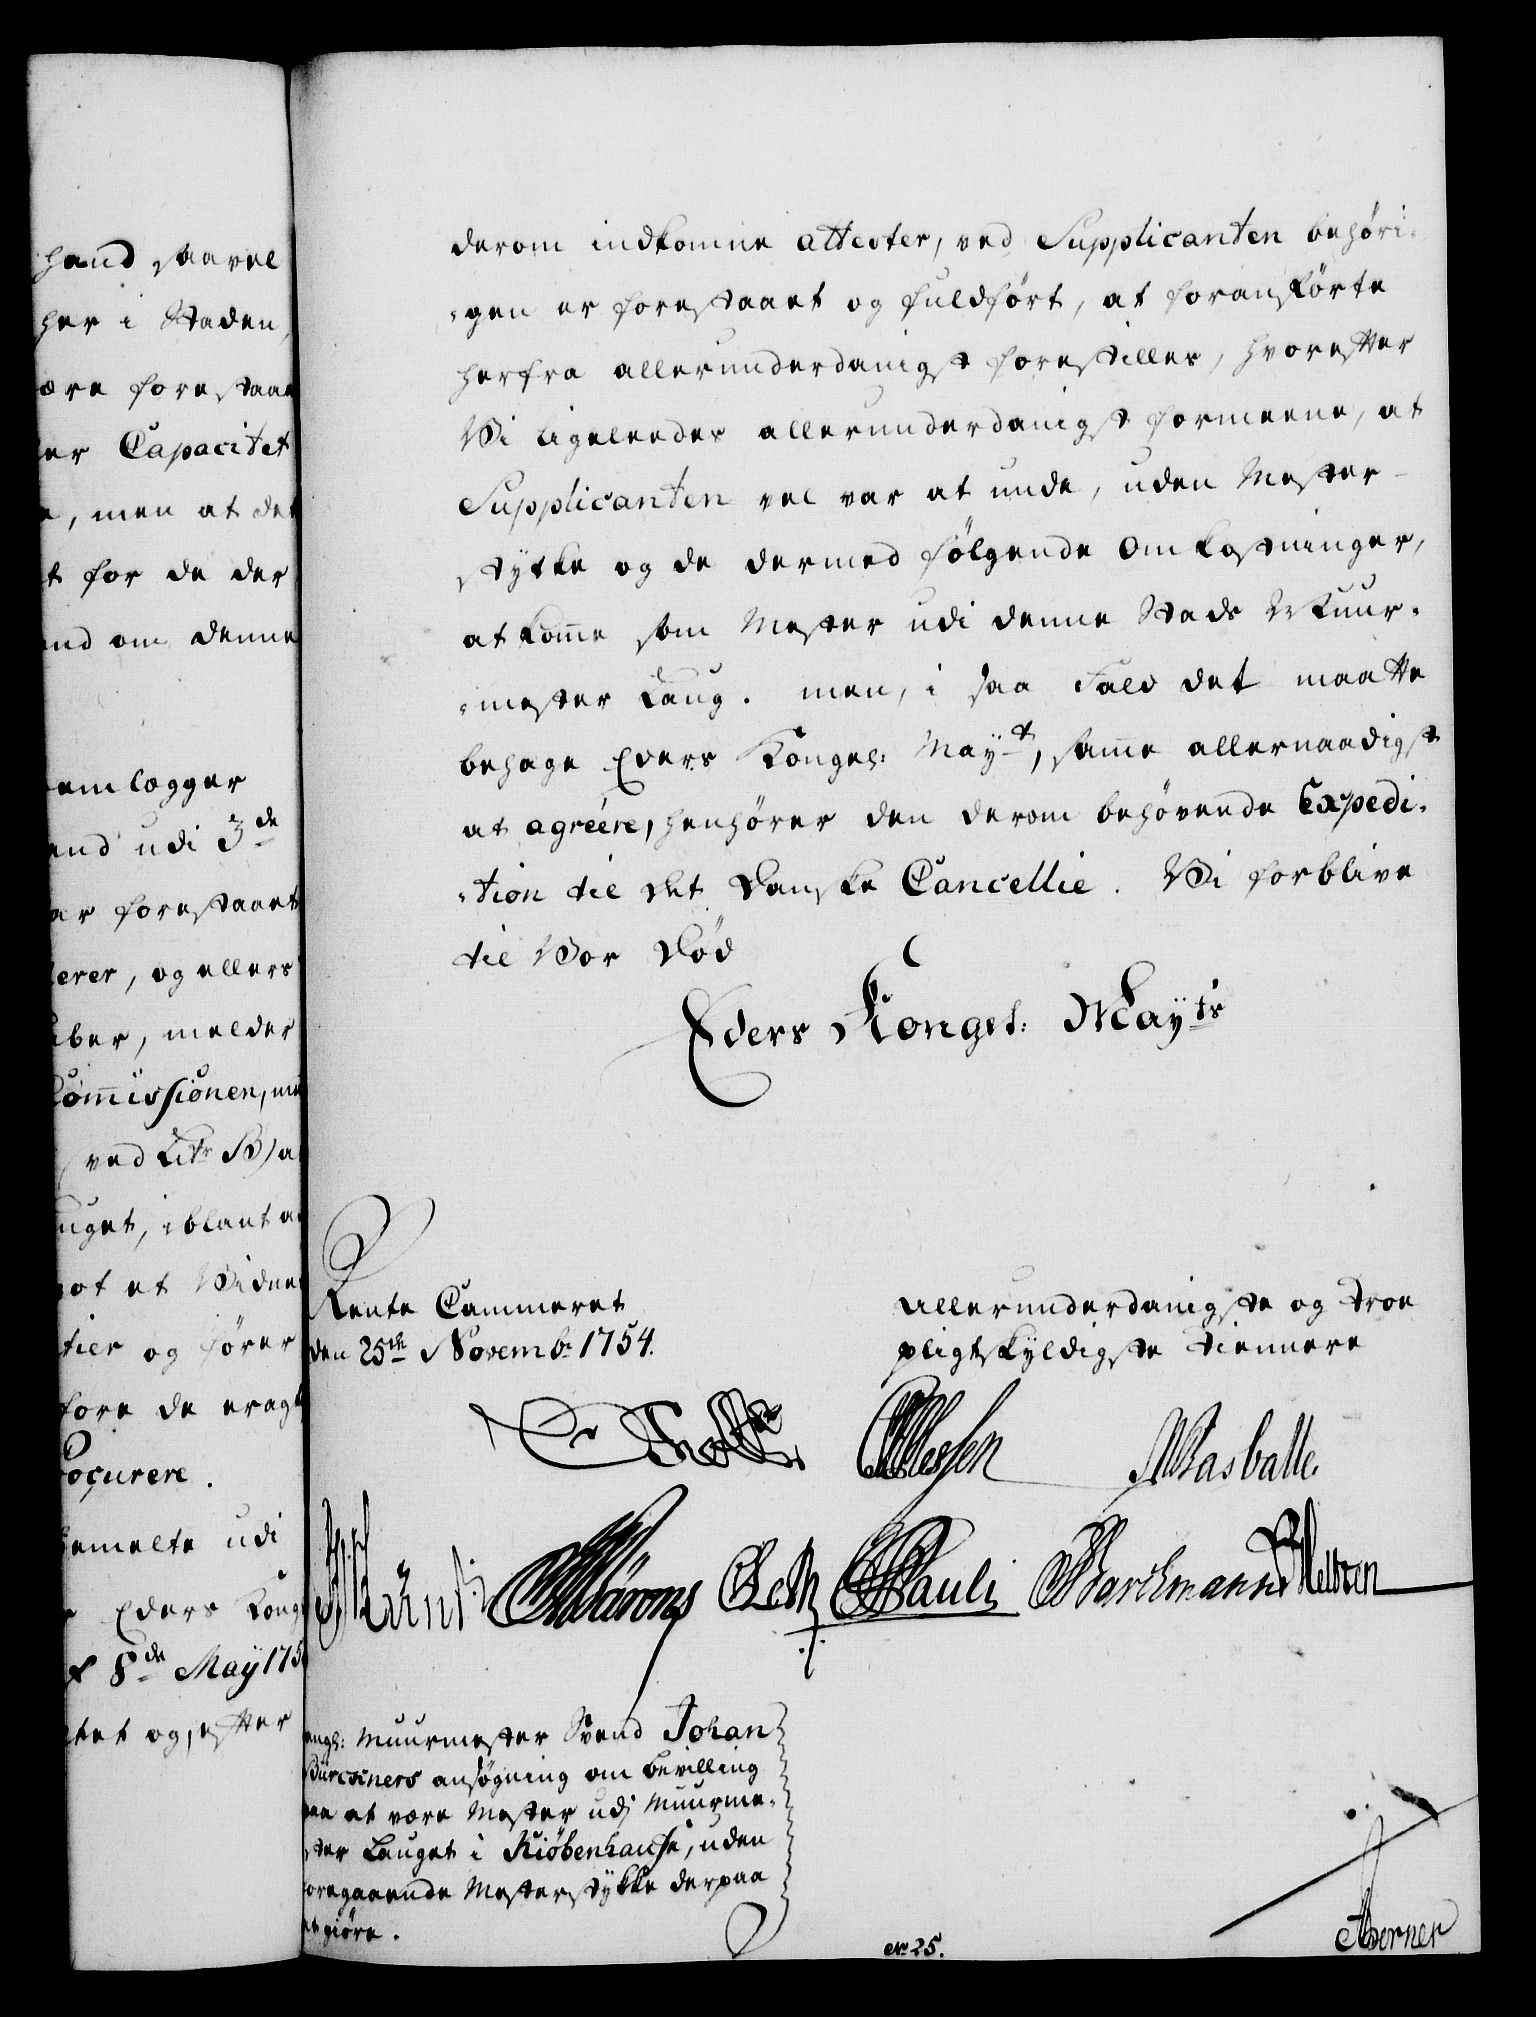 hand saavel
her i Staden,
ære forestaae
er Capacitet
e, men at det
t for de der
end om denne
emlægger
end udi 3de
ar forestaaet
erer, og ellers
uber, melder
Commissionen, me
(ved Litr B) a
uget, iblant a
got et Vidne
tier og fører
fore de eragt
rocurere.
hemelte udi
Eders Kong
af 8de Maÿ 175
ttet og, efter
derom indkomne attester, ved Supplicanten behöri-
-gen er forestaaet og fuldført, at foranførte
herfra allerunderdanigst forestilles, hvorefter
Vi ligeleedes allerunderdanigst formeene, at
Supplicanten vel var at unde, uden Mester-
stykke og de dermed følgende Omkostninger,
at komme som Mester udi denne Stads Muur-
-mester Laug. men, i saa Fald det maatte
behage Eders Kongel: Maÿt, samme allernaadigst
at agréere, henhører den derom behøvende Expedi-
-tion til det Danske Cancellie. Vi forblive
til Vor Død
Eders Kongel: Maÿts
Rente Cammeret
den 25de Novembr 1754.
Allerunderdanigste og troe
pligtskyldigste tiennere
Holst
Wasballe.
Pauli Barchmann
angl: Muurmester Svend Johan
ansøgning om bevilling
paa at være Mester udj Muurme-
ster Lauget i Kiøbenhafn, uden
foregaaende Mesterstykke derpaa
at giöre.
No 25.
Aberner